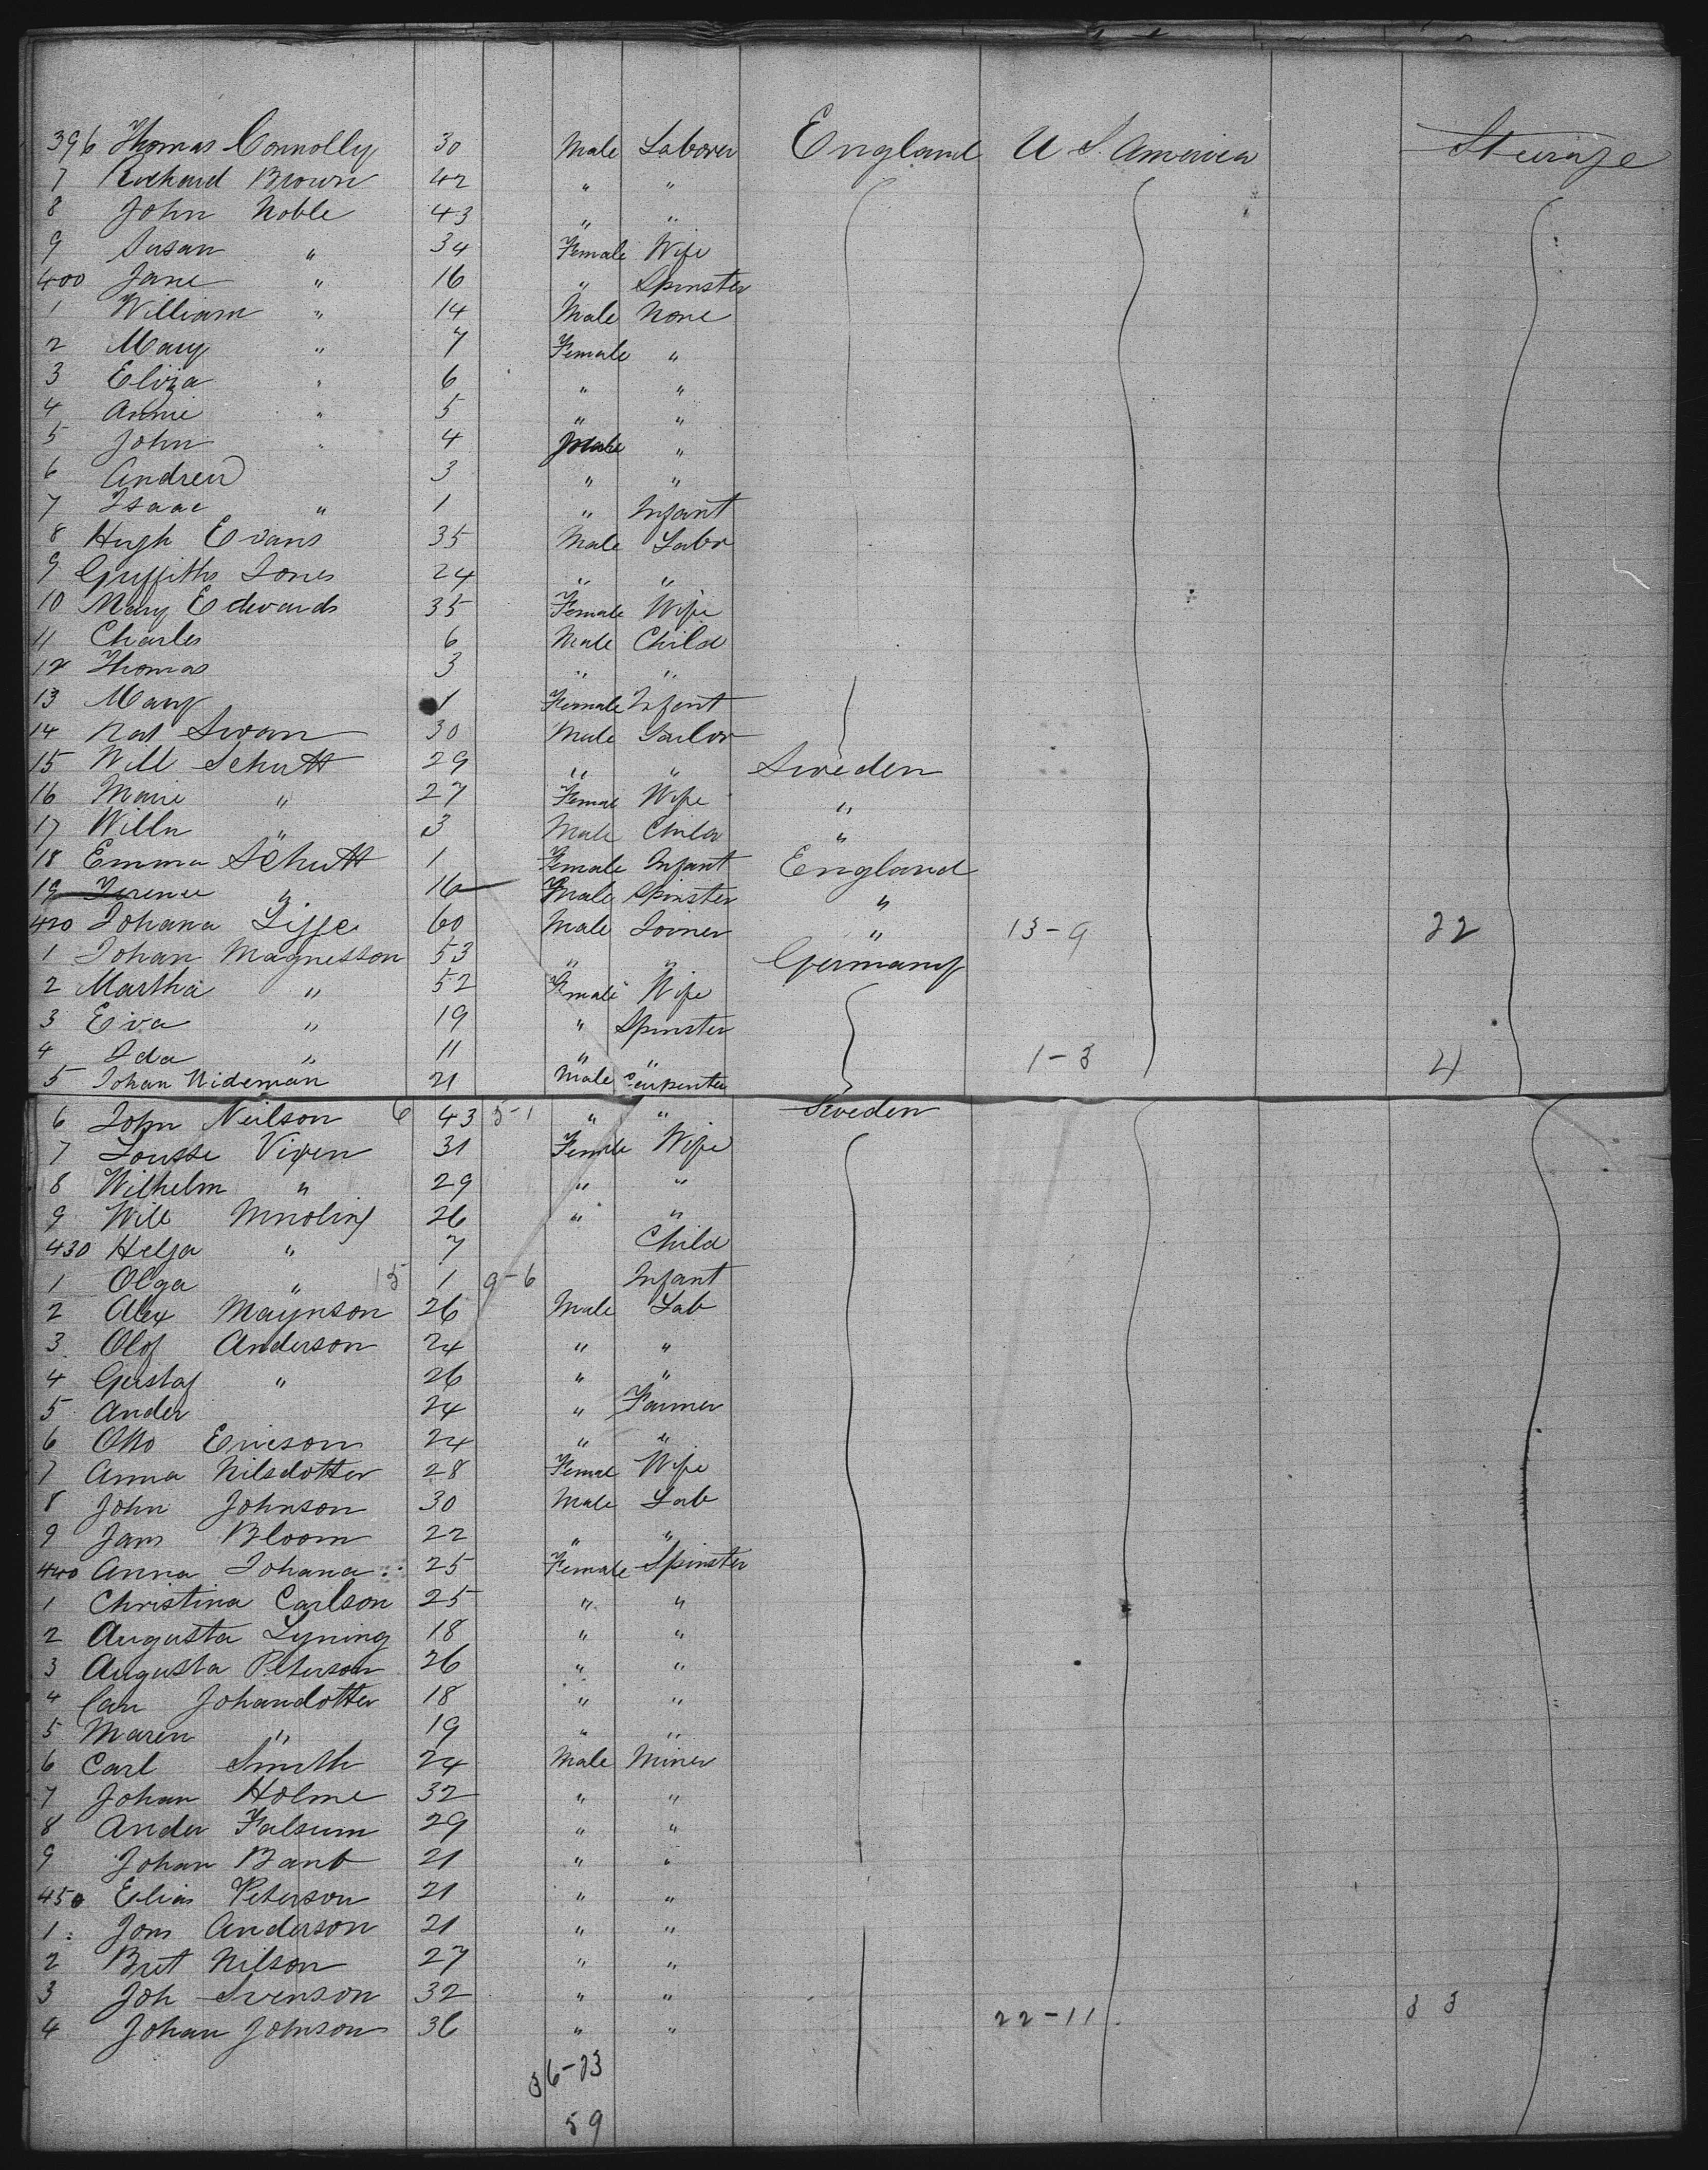 396 Thomas Connolly 30 Male Laborer England U S. America Steerage
7 Richard Brown 42 " "
8 John Noble 43 " "
9 Susan " 34 Female Wife
400 Jane " 16 " Spinster
1 William " 14 Male None
2 Mary " 7 Female "
3 Eliza " 6 " "
4 Annie " 5 " "
5 John " 4 Male "
6 Andrew 3 " "
7 Isaac " 1 " Infant
8 Hugh Evans 35 Male Labr
9 Griffiths Jones 24 " "
10 Mary Edwards 35 Female Wife
11 Charles 6 Male Child
12 Thomas 3 " "
13 Mary 1 Female Infant
14 Nat Swan 30 Male
15 Will Schutt 29 " " Sweden
16 Marie " 27 Femal Wife "
17 Willn " 3 Male Child "
18 Emma Schutt 1 Female Infant England
19 " 16 Spinster "
420 Johana 60 Male Joiner " 13-9 22
1 Johan Magnesson 53 " " Germany
2 Martha " 52 Female Wife
3 Eva " 19 " Spinster
4 Ida " 11 " " 1-3 4
5 Johan Wideman 21 Male Carpenter
6 John Neilson 6 43 5-1 " " Sweden
7 31 Female Wife
8 Wilhelm " 29 " "
9 Will 26 " "
430 Helga " 7 Child
1 Olga " 15 1 9-6 Infant
2 Alex Maynson 26 Male Lab
3 Olof Anderson 24 " "
4 Gustaf " 26 " "
5 Ander 24 " Farmer
6 Otto Ericson 24 " "
7 Anna Nilsdotter 28 Femal Wife
8 John Johnson 30 Male Lab
9 Jans Bloom 22 " "
440 Anna Johana 25 Female Spinster
1 Christina Carlson 25 " "
2 Augusta Lyning 18 " "
3 Augusta Peterson 26 " "
4 Johandotter 18 " "
5 Maren " 19 " "
6 Carl Smith 24 Male Miner
7 Johan Holme 32 " "
8 Ander Falsum 29 " "
9 Johan 21 " "
450 Elias Peterson 21 " "
1 Jons Anderson 21 " "
2 Nilson 27 " "
3 Joh Svenson 32 " "
4 Johan Johnson 36 " " 22-11 33
36-23
59